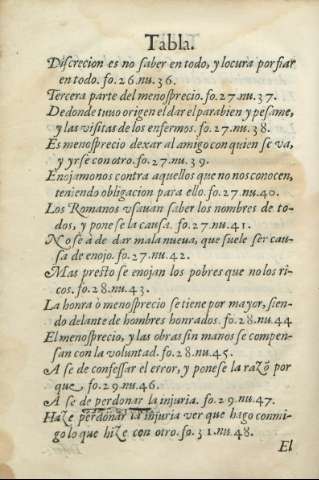 Tabla.
Discrecion es no saber en todo, y locura porfiar
en todo. fo. 26. nu. 36.
Tercera parte del menosprecio. fo. 27. nu. 37.
Dedonde tuuo origen el dar el parabien y pesame,
y las visitas de los enfermos. fo. 27. nu. 38.
Es menosprecio dexar al amigo con quien se va,
y yrse con otro. fo. 27. nu. 39.
Enojamonos contra aquellos que no nos conocen,
teniendo obligacion para ello. fo. 27. nu. 40.
Los Romanos vsauan saber los nombres de to-
dos, y pone se la causa. fo. 27. nu. 41.
No se à de dar mala nueua, que suele ser cau-
sa de enojo. fo. 27. nu. 42.
Mas presto se enojan los pobres que no los ri-
cos. fo. 28. nu. 43.
La honra ò menosprecio se tiene por mayor, sien-
do delante de hombres honrados. fo. 28. nu. 44
El menosprecio, y las obras sin manos se compen-
san con la voluntad. fo. 28. nu. 45.
A se de confessar el error, y ponese la razõ por
que. fo. 29. nu. 46.
A se de perdonar la injuria. fo. 29. nu. 47.
Haze perdonar la injuria ver que hago conmi-
go lo que hize con otro. fo. 31. nu. 48.
El